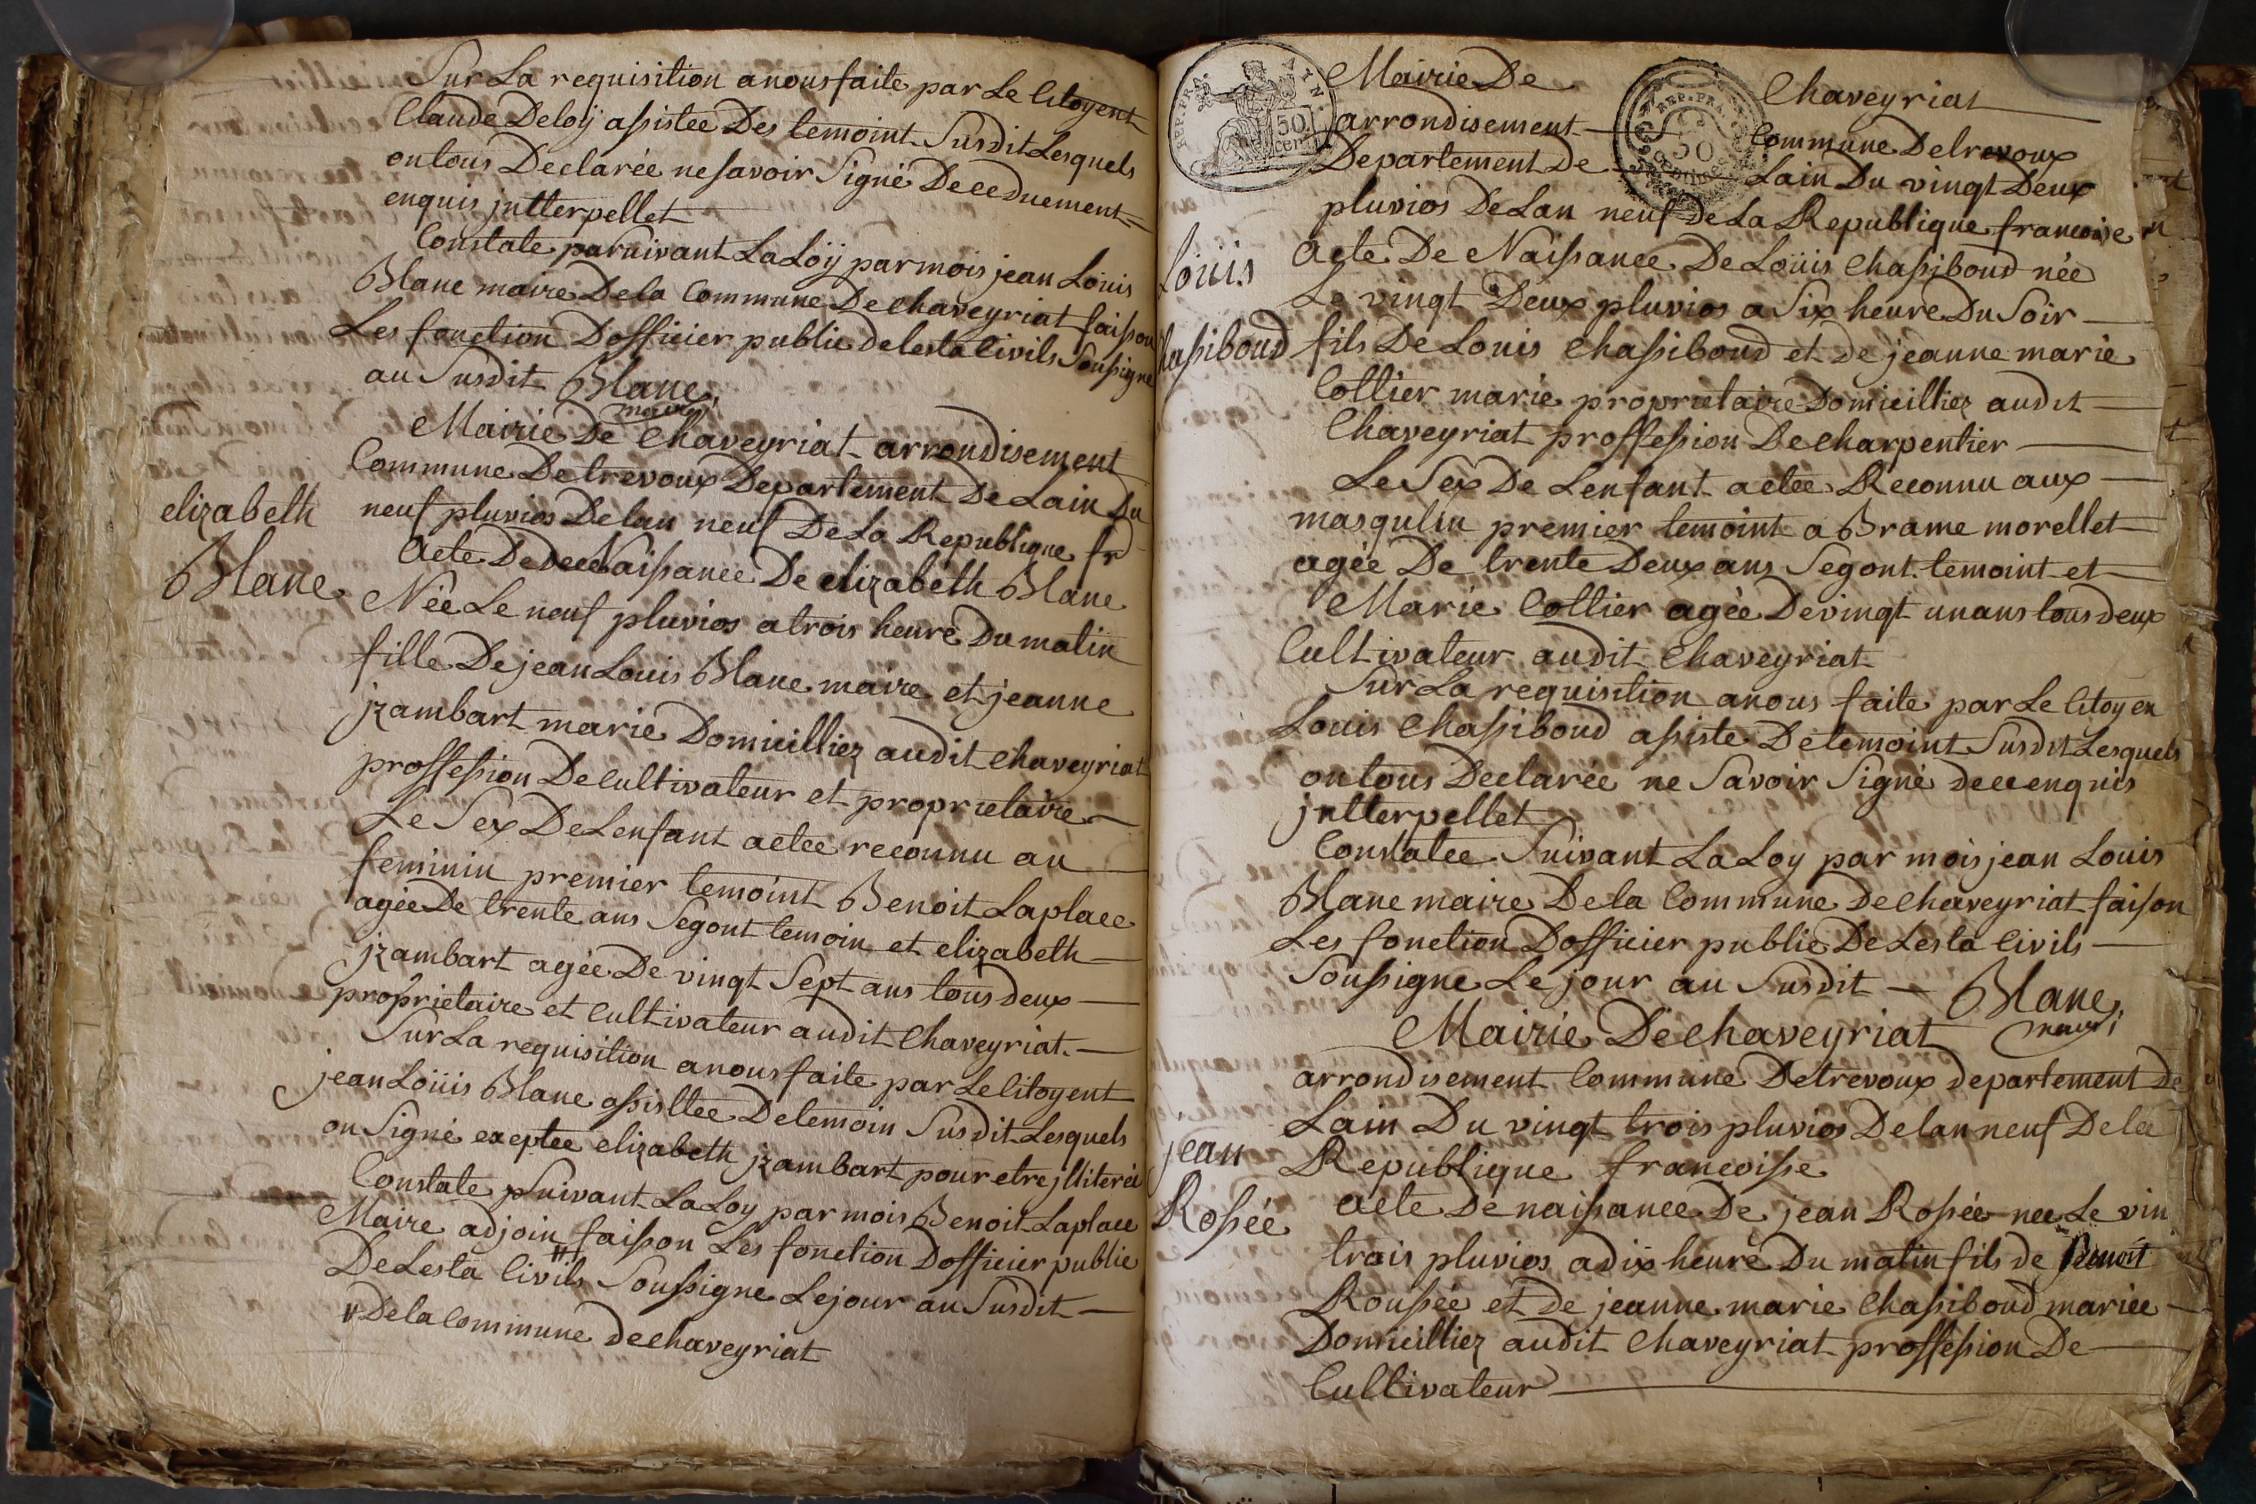 Sur La requisition anous faite par Le Citoyent
Claude Deloÿ assistee Des temoint Susdit Lesquels
on tous Declarée ne savoir Signé De ce duement
enquis jntterpellet
Constate par suivant La Loÿ par mois jean Louis
Blanc maire De la Commune De Chaveyriat faisson
Les fonction Dofficier public de lesta Civils Soussigne
au Susdit Blanc
maire
Mairie De Chaveyriat arrondisement
Commune De trevoux Departement De Lain Du
neuf pluvios De lan neuf De La Republique fr
elizabeth
Blanc
Acte De Naissance De elizabeth Blanc
Née Le neuf pluvios a trois heure Du matin
fille De jean Louis Blanc maire et jeanne
jzambart marié Domicilliez audit Chaveyriat
proffession De Cultivateur et proprietaire
Le Sex De Lenfant actee reconnu au
feminin premier temoint Benoit Laplace
agée De trente ans Segont temoin et elizabeth
jzambart agée De vingt Sept ans tous deux
proprietaire et Cultivateur audit Chaveyriat.
Sur La requisition anous faite par Le Citoyent
jean Loüis Blanc assistee De temoin Susdit Lesquels
on Signé exeptee elizabeth jzambart pour etre jlliteréé
Constate suivant La Loy par mois Benoit Laplace
Maire adjoin # faisson Les fonction Dofficier public
De Lesta Civils Soussigne Le jour au Susdit
# De la Commune de Chaveyriat
REP. FRA. AIN.
50.
cen.
REP. FRA.
50
centimes
Mairie De Chaveyriat
arrondisement Commune De trevoux
Departement De Lain Du vingt Deux
pluvios De Lan neuf De La Republique francoise
Loüis
Chassiboud
Acte De Naissance De Loüis Chassiboud née
Le vingt Deux pluvios a Six heure Du Soir
fils De Louis Chassiboud et de jeanne marie
Collier marié proprietaire Domicilliez audit
Chaveyriat proffession De Charpentier
Le Sex De Lenfant actée Reconnu aux
masqulin premier temoint a Brame morellet
agée De trente Deux ans Segont temoint et
Marie Collier agée De vingt un ans tous deux
Cultivateur audit Chaveyriat
Sur La requisition anous faite par Le Citoyen
Louis Chassiboud assiste De temoint Susdit Lesquels
on tous Declarée ne Savoir Signé de ce enquis
jntterpellet
Constatee Suivant La Loy par mois jean Louis
Blanc maire De la Commune De Chaveyriat faison
Les fonction Dofficier public De Lesta Civils
Soussigne Le jour au Susdit Blanc
maire
Mairie De Chaveyriat
arrondisement Commune De trevoux departement De
Lain Du vingt trois pluvios De lan neuf De la
Republique francoisse
jean
Rossée
acte De naissance De jean Rossée nee Le vin
trois pluvios a dix heure Du matin fils de Benoit
Roussée et de jeanne marie Chassiboud mariée
Domicilliez audit Chaveyriat proffession De
Cultivateur